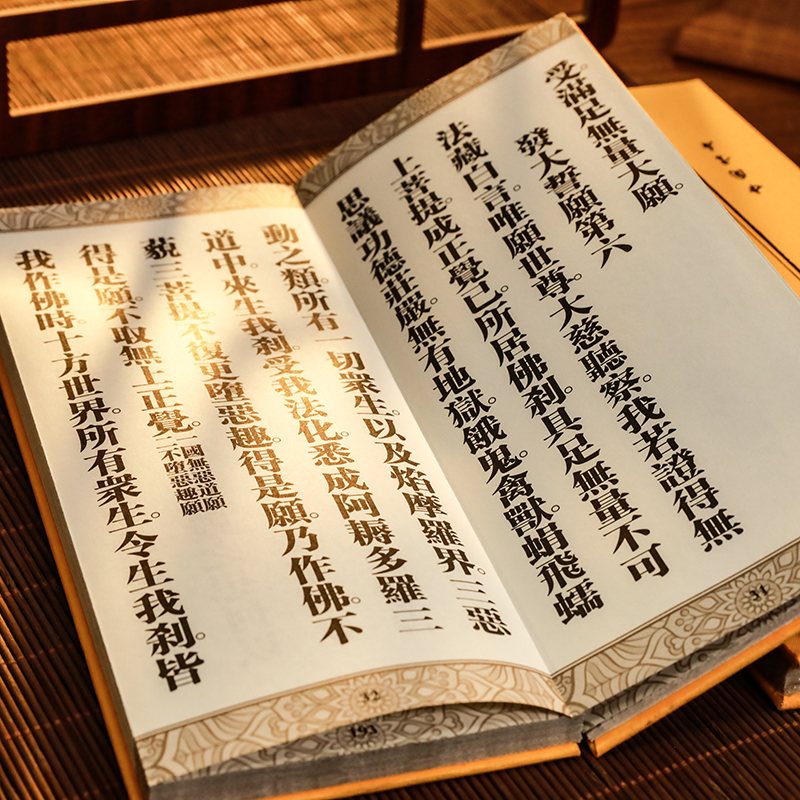 受滿足無量大願。
發大誓願第六
法藏白言。唯願世尊。大慈聽察。我若證得無
上菩提。成正覺已。所居佛刹。具足無量不可
思議功德莊嚴。無有地獄。餓鬼。禽獸。蜎飛蠕
31
動之類。所有一切衆生。以及焰摩羅界。三惡
道中。來生我刹。受我法化。悉成阿耨多羅三
藐三菩提。不復更墮惡趣。得是願。乃作佛。不
得是願。不取無上正覺。一國無惡道願二不墮惡趣願
我作佛時。十方世界。所有衆生。令生我刹。皆
32
193